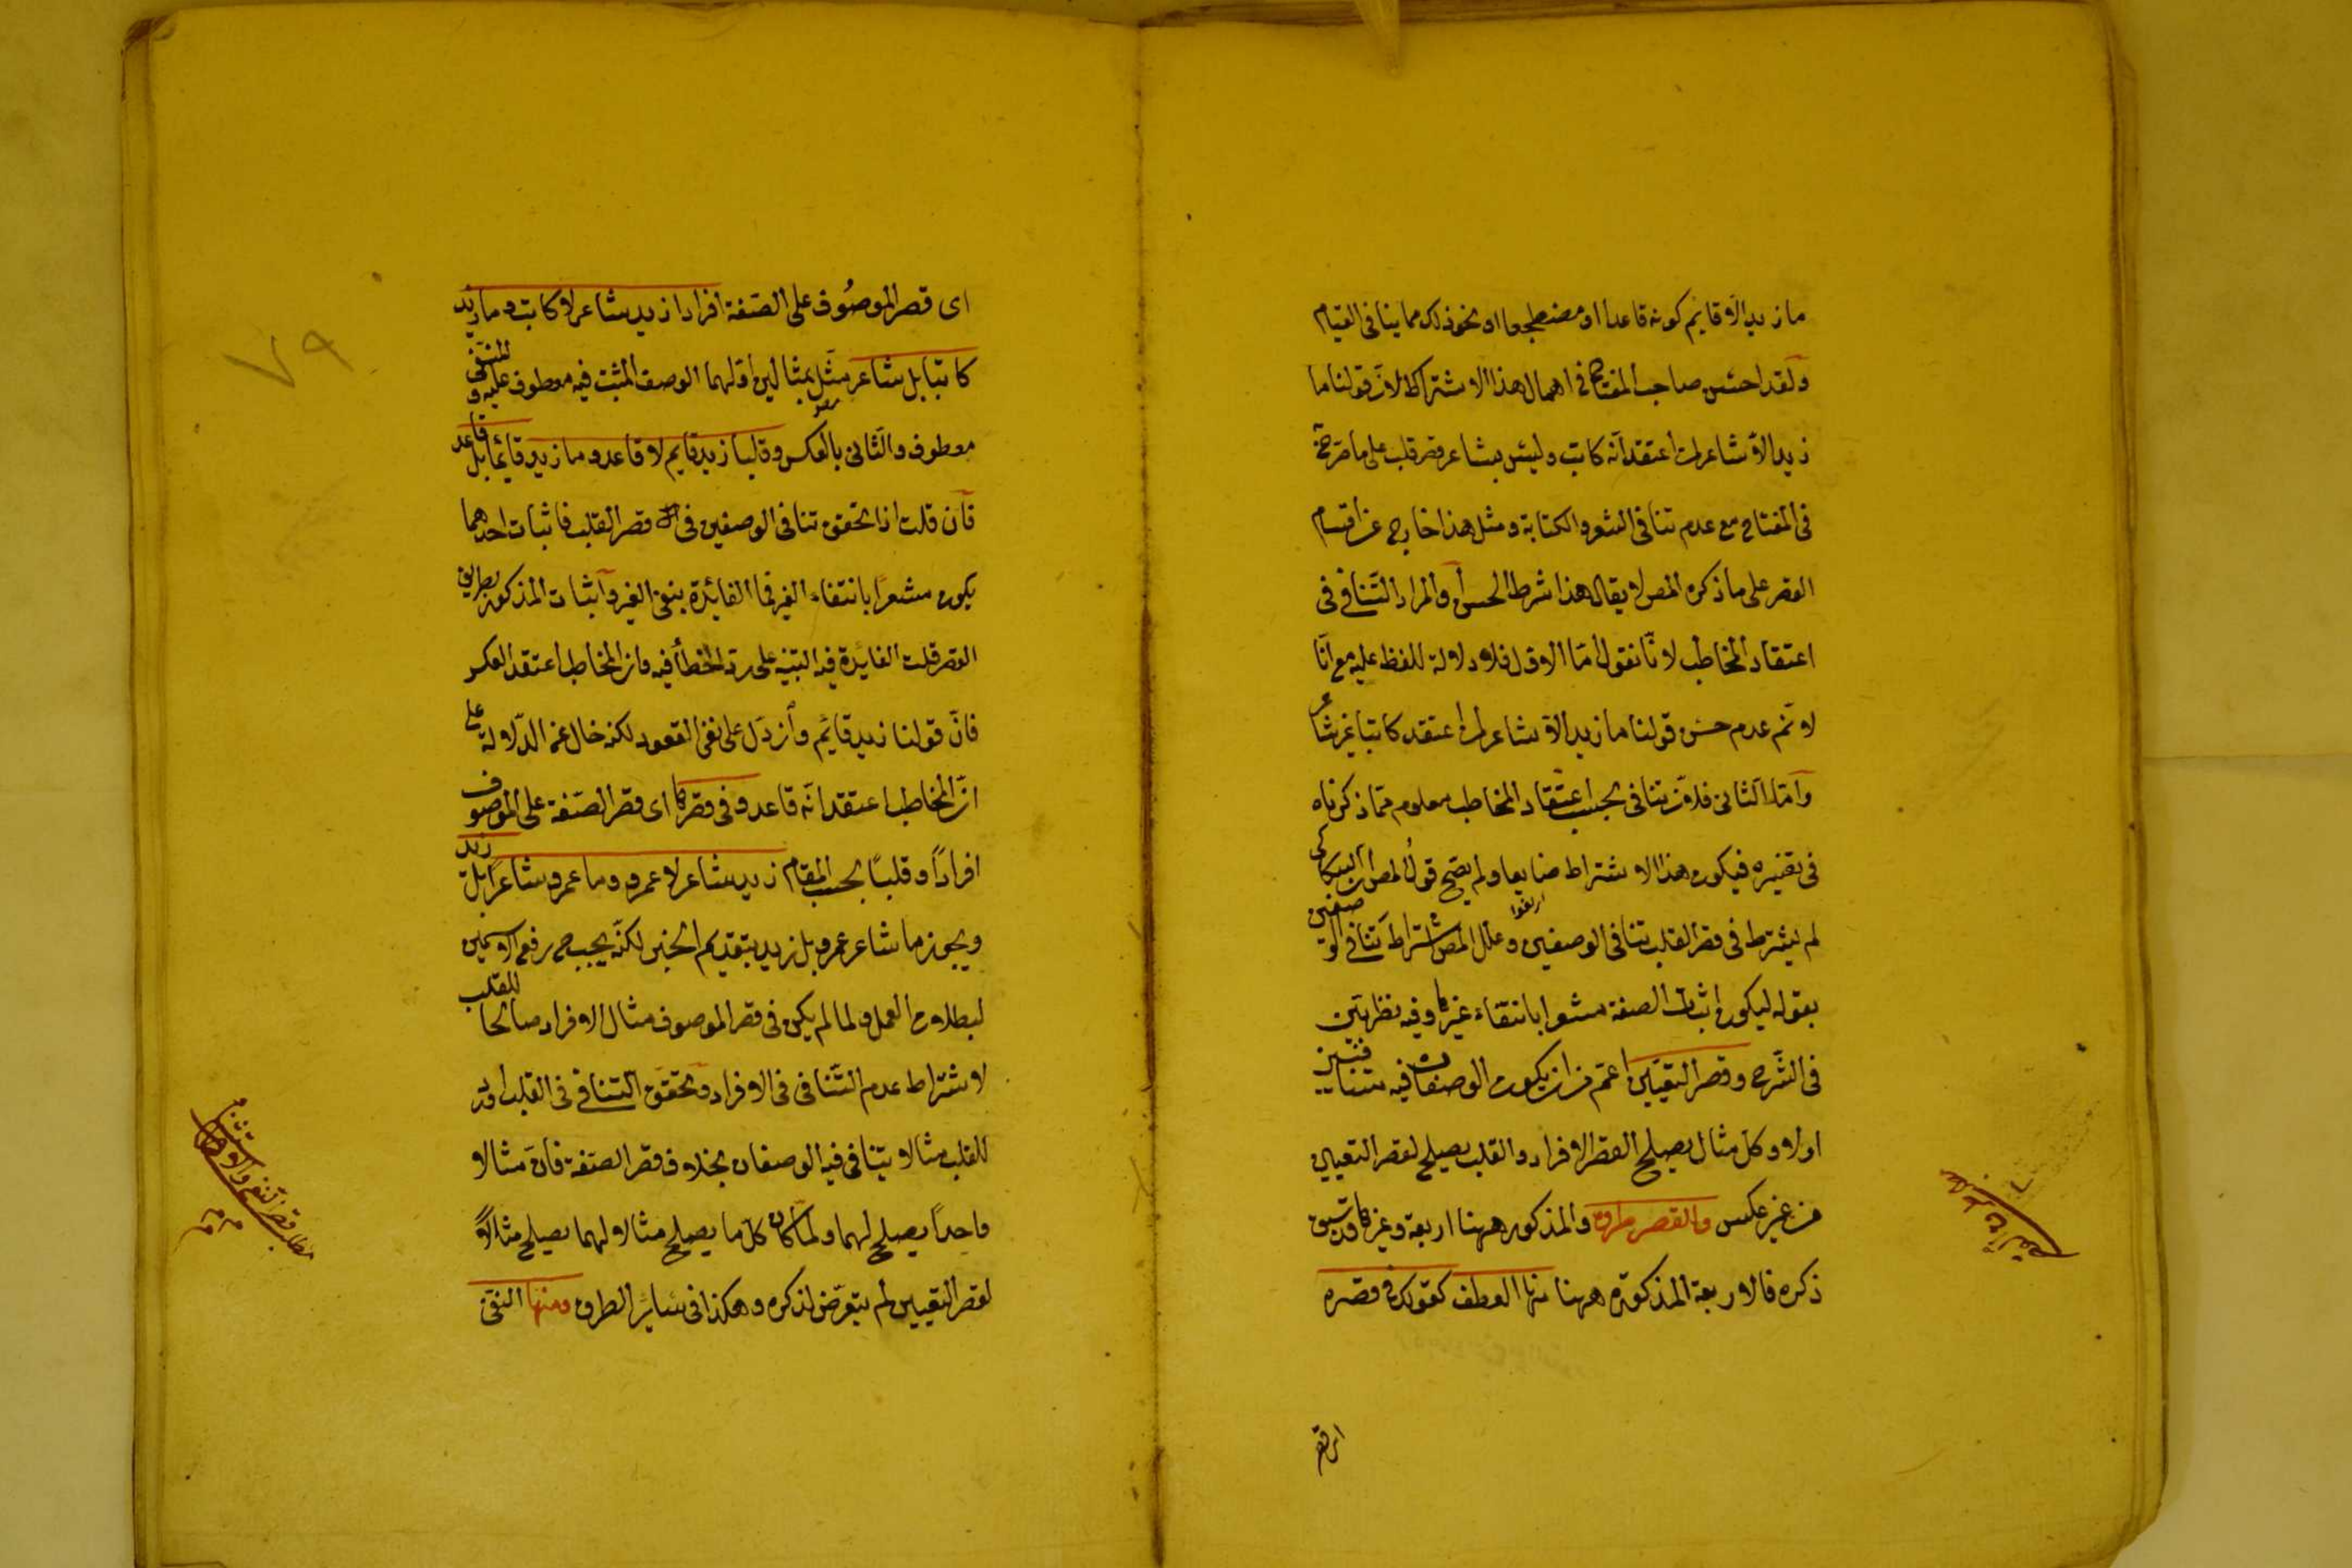 ما زيد الا قايم كونه قاعدا او مضطجعا او نحو ذلك مما ينافى القيام
ولقد احسن صاحب المفتاح فى اهمال هذا الاشتراط لان قولنا ما
زيد الا شاعر لمن اعتقد انه كاتب وليس بشاعر قصر قلب على ما صرح به
فى المفتاح مع عدم تنافى الشعر والكتابة ومثل هذا خارج عن اقسام
القصر على ما ذكره المص لا يقال هذا شرط الحسن او المراد التنافى فى
اعتقاد المخاطب لانا نقول اما الاول فلا دلالة للفظ عليه مع انا
لا نم عدم حسن قولنا ما زيد الا شاعر لمن اعتقد كاتبا غير شاعر
واما الثانى فلان تنافى بحسب اعتقاد المخاطب معلوم مما ذكرناه
فى تفسيره فيكون هذا الاشتراط ضايعا ولم يصح قول المص ان السكاكى
لم يشترط فى قصر القلب تنافى الوصفين وعلل المص اشتراط تنافى الوصفين
بقوله ليكون اثبات الصفة مشعرا بانتفاء غيرها وفيه نظر بين
فى الشرح وقصر التعيين اعم من ان يكون الوصفان فيه متنافيين
او لا وكل مثال يصلح لقصر الافراد والقلب يصلح لقصر التعيين
من غير عكس وللقصر طرق والمذكور ههنا اربعة وغيرها قد سبق
ذكره فالاربعة المذكورة ههنا منها العطف كقولك فى قصره
اى قصر الموصوف على الصفة افرادا زيد شاعر لا كاتب وما زيد
كاتبا بل شاعر مثل بمثالين اولهما الوصف المثبت فيه معطوف عليه والمنفى
معطوف والثانى بالعكس وقلبا زيد قايم لا قاعد وما زيد قائما بل قاعد
فان قلت اذا تحقق تنافى الوصفين فى قصر القلب فاثبات احدهما
يكون مشعرا بانتفاء الغير فما الفائدة بنفى الغير واثبات المذكور بطريق
القصر قلت الفايدة فيه التنبيه على رد الخطأ فيه وان المخاطب اعتقد العكس
فان قولنا زيد قايم وان دل على نفى القعود لكنه خال عن الدلالة على
ان المخاطب اعتقد انه قاعد وفى قصرها اى قصر الصفة على الموصوف
افرادا وقلبا بحسب المقام زيد شاعر لا عمرو وما عمرو شاعرا بل زيد
ويجوز ما شاعر عمرو بل زيد بتقديم الخبر لكنه يجب ح رفع الاسمين
لبطلان العمل ولما لم يكن فى قصر الموصوف مثال الافراد صالحا للقلب
لاشتراط عدم التنافى فى الافراد وتحقق التنافى فى القلب اورد
للقلب مثالا يتنافى فيه الوصفان بخلاف قصر الصفة فان مثالا
واحدا يصلح لهما ولما كان كل ما يصلح مثالا لهما يصلح مثالا
لقصر التعيين لم يتعرض لذكره وهكذا فى سائر الطرق ومنها النفى
٧٩